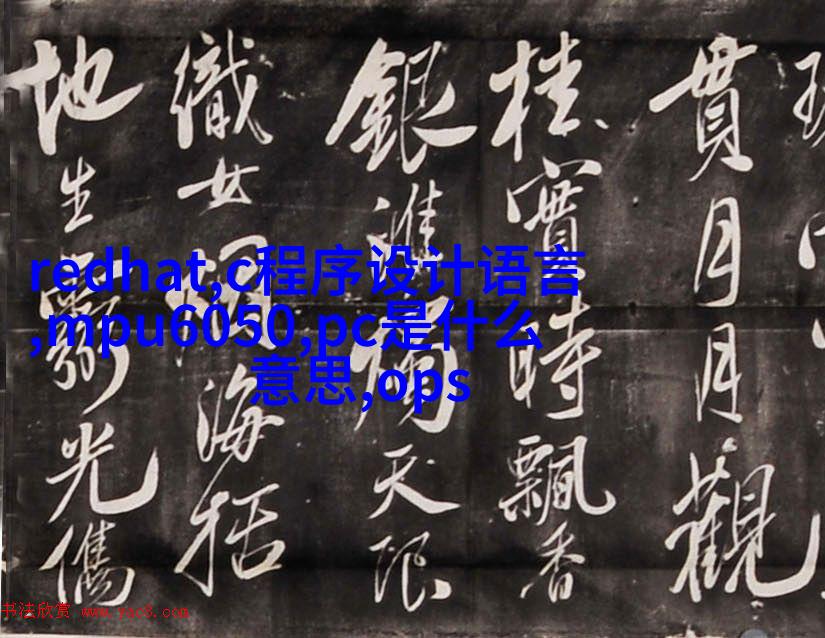 貫月月觀
桂實時飄香
銀淮燭天限
織女海括
地生光儁
redhat,c程序设计语言
,mpu6050,pc是什么
意思,ops
书法欣赏 www.yac8.com